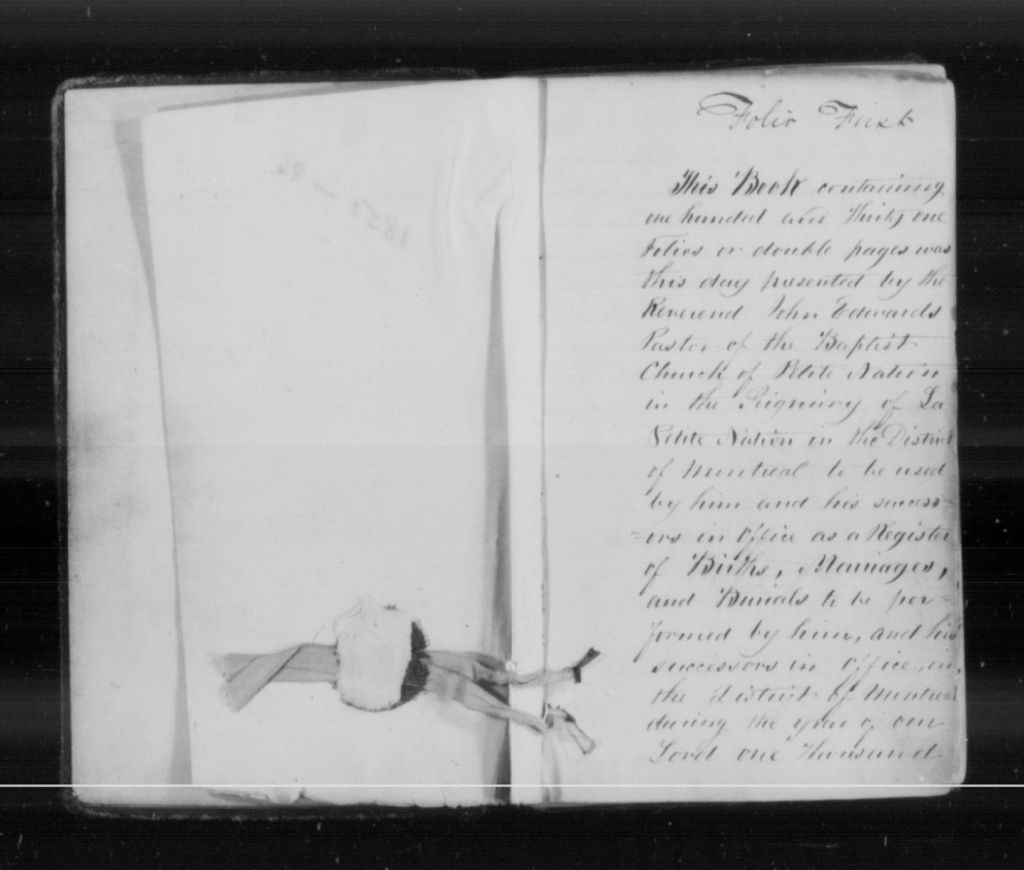 1851 – 96
Folio First
This Book containing
one hundred and thirty one
Folios or double pages was
this day presented by the
Reverend John Edwards
Pastor of the Baptist
Church of Petite Nation
in the Signiory of La
Petite Nation in the District
of Montreal to be used
by him and his success=
=ors in office as a Register
of Births, Marriages,
and Burials to be per=
formed by him, and his
successors in Office, in
the district of Montreal
during the year of our
Lord one thousand